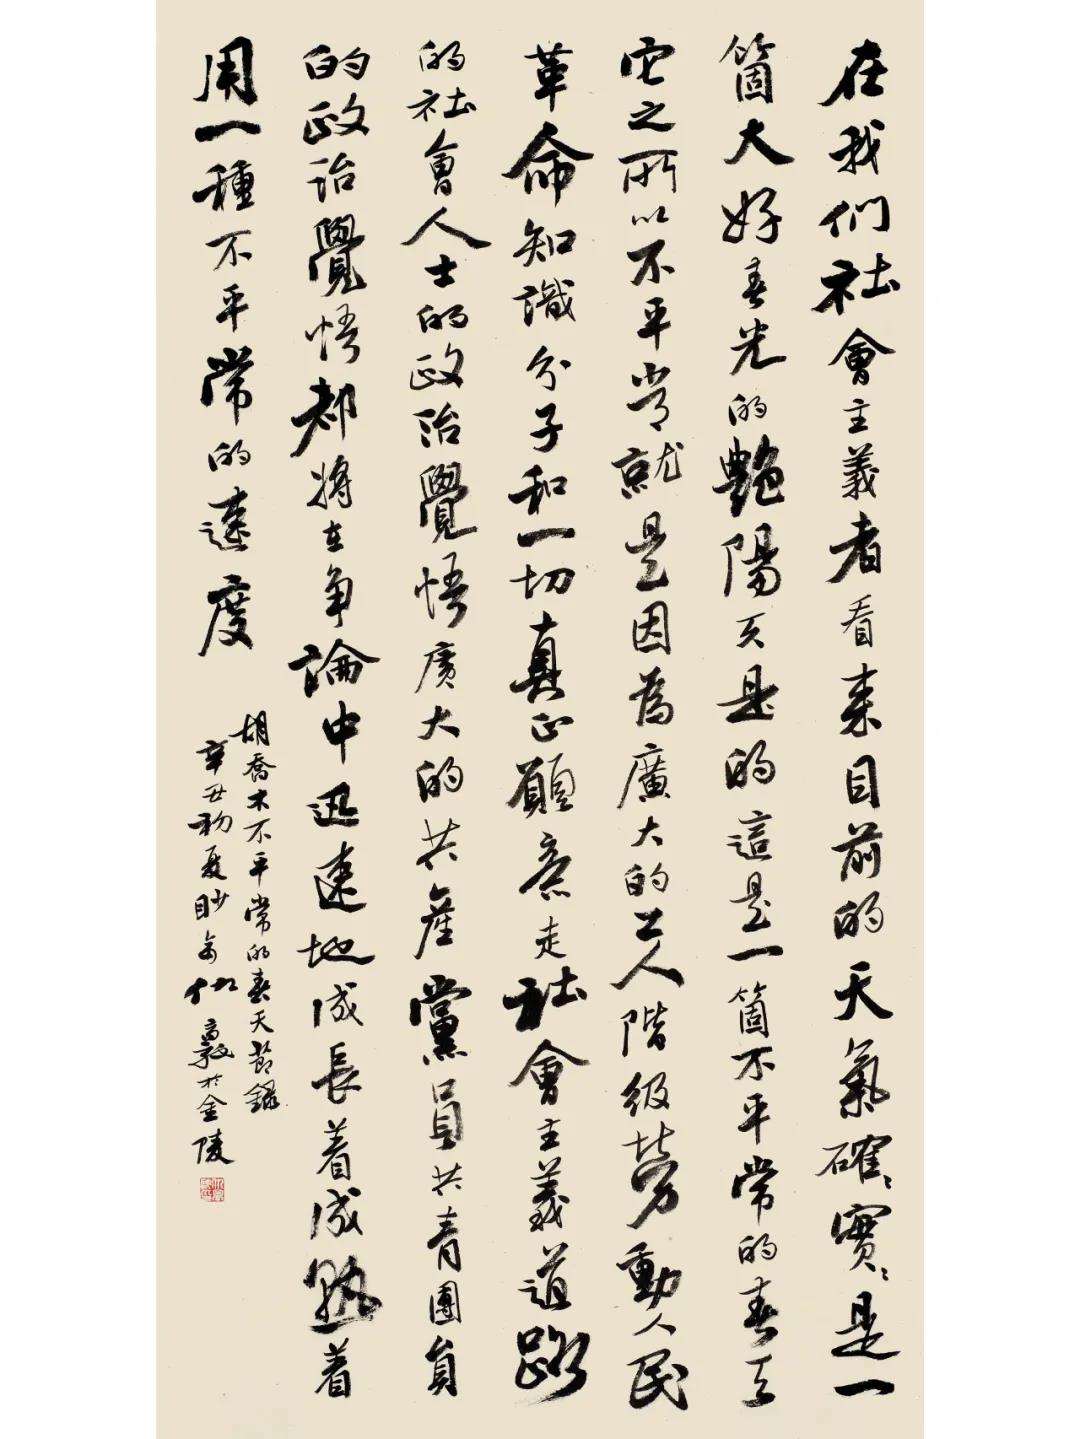 在我们社會主義者看来目前的天氣確〻實〻是一
箇大好春光的艷陽天是的這是一箇不平常的春天
它之所以不平常就是因為廣大的工人階級勞動人民
革命知識分子和一切真正願意走社會主義道路
的社會人士的政治覺悟廣大的共產黨員共青團員
的政治覺悟都將在争論中迅速地成長着成熟着
用一種不平常的速度
胡喬木不平常的春天節録
辛丑初夏於金陵